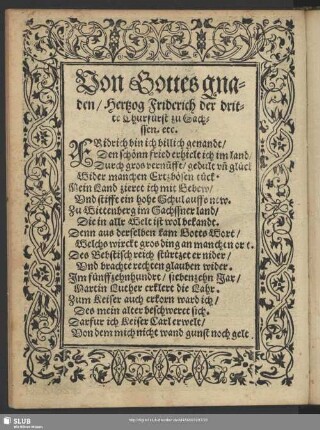 Von Gottes gna-
den / Hertzog Friderich der drit-
te Churfürst zu Sach-
ssen. etc.
FRidrich bin ich billich genandt /
Den schönen fried erhielt ich im land /
Durch gros vernunfft / gedult vñ glück
Wider manchen Ertzbösen tück.
Mein Land zieret ich mit Gebew /
Vnd stifft ein hohe Schul auffs new.
Zu Wittenberg im Sachssner land /
Die in aller Welt ist wol bekandt.
Denn aus derselben kam Gotts Wort /
Welchs wirckt gros ding an manchen ort.
Des Bebstisch reich stürtzet er nider /
Vnd bracht rechten glauben wider.
Im fünffzehnhundert / siebenzehn Jar /
Martin Luther erklert die Lahr.
Zum Keiser auch erkorn ward ich /
Des mein alter beschweret sich.
Darfur ich Keiser Carl erwelt /
Von dem mich nicht wand gunst noch gelt
SLUB